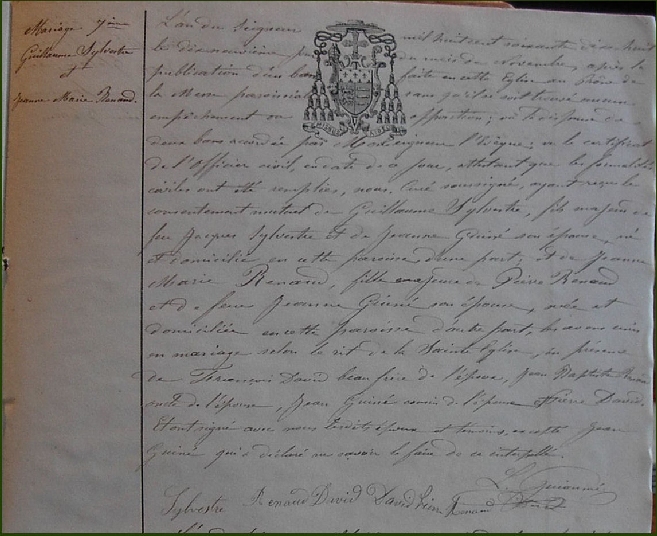 Mariage 7ème
Guillaume Sylvestre
et
Jeanne Marie Renaud.
L'an du Seigneur mil huit cent soixante dix huit
le dix neuvième du mois de Novembre, après la
publication d'un ban faite en cette Eglise au prône de
la Messe paroissiale sans qu'il se soit trouvé aucun
empêchement ou opposition; vu la dispense de
deux bans accordée par Monseigneur l'Evêque; vu le certificat
de l'Officier civil, en date de ce jour, attestant que les formalités
civiles ont été remplies, nous, Curé soussigné, ayant reçu le
consentement mutuel de Guillaume Sylvestre, fils majeur de
feu Jacques Sylvestre et de Jeanne Guiné son épouse, né
et domicilié en cette paroisse, d'une part; et de Jeanne
Marie Renaud, fille majeure de Pierre Renaud
et de feue Jeanne Guiné son épouse, née et
domiciliée en cette paroisse d'autre part, les avons unis
en mariage selon le rit de la Sainte Eglise, en présence
de François David beau frère de l'époux, Jean Baptiste
oncle de l'épouse, Jean Guiné cousin de l'épouse Pierre David.
et ont signé avec nous lesdits époux et témoins, excepté Jean
Guiné qui a déclaré ne savoir le faire de ce interpellé.
Sylvestre Renaud David David Pierre Renaud